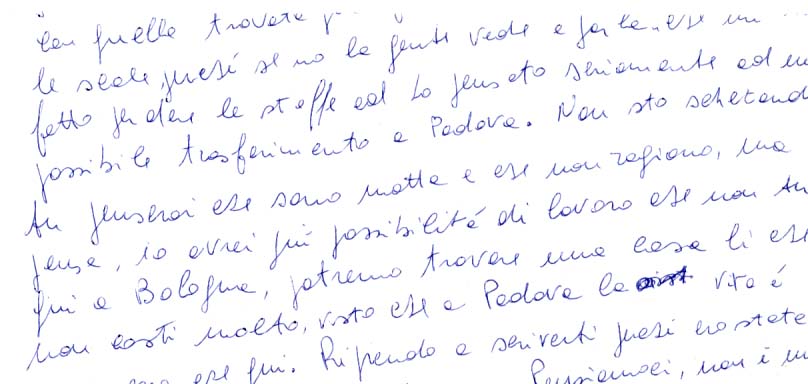 con quella trovata
le scale, quasi se no la gente vede e parla, che un
fatto perdere le staffe ed ho pensato seriamente ad un
possibile trasferimento a Padova. Non sto scherzand
tu penserai che sono matta e che non ragiono, ma
pensa, io avrei più possibilità di lavoro che non tu
qui a Bologna, potremo trovare una casa lì che
non costi molto, visto che a Padova la vita è
che qui. Riprendo a scriverti quasi
Pensiamoci, non è